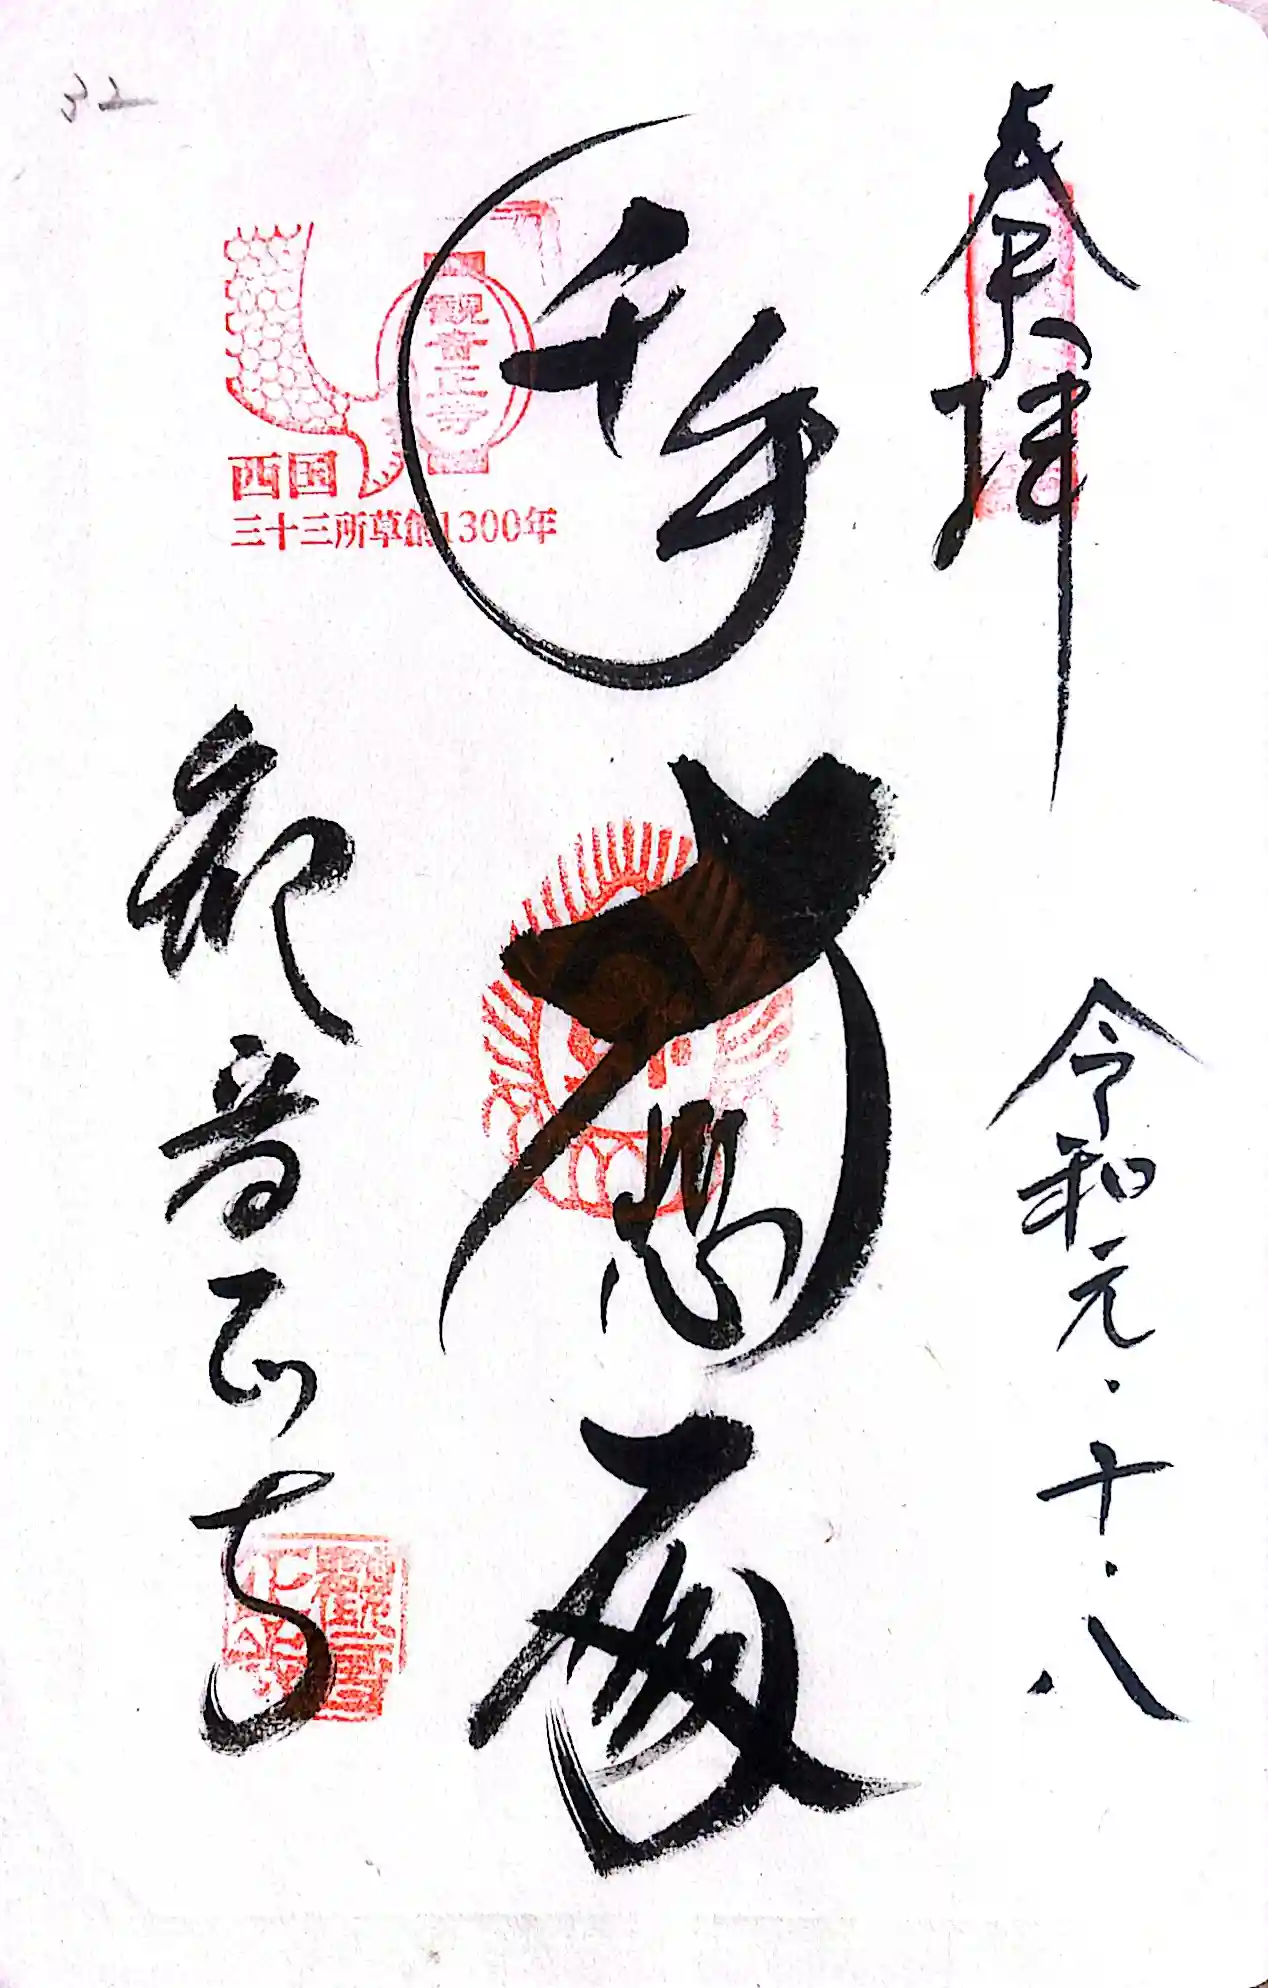 奉拝
令和元・十・八
千手
大悲殿
観音正寺
観音正寺
西国
三十三所草創1300年
32